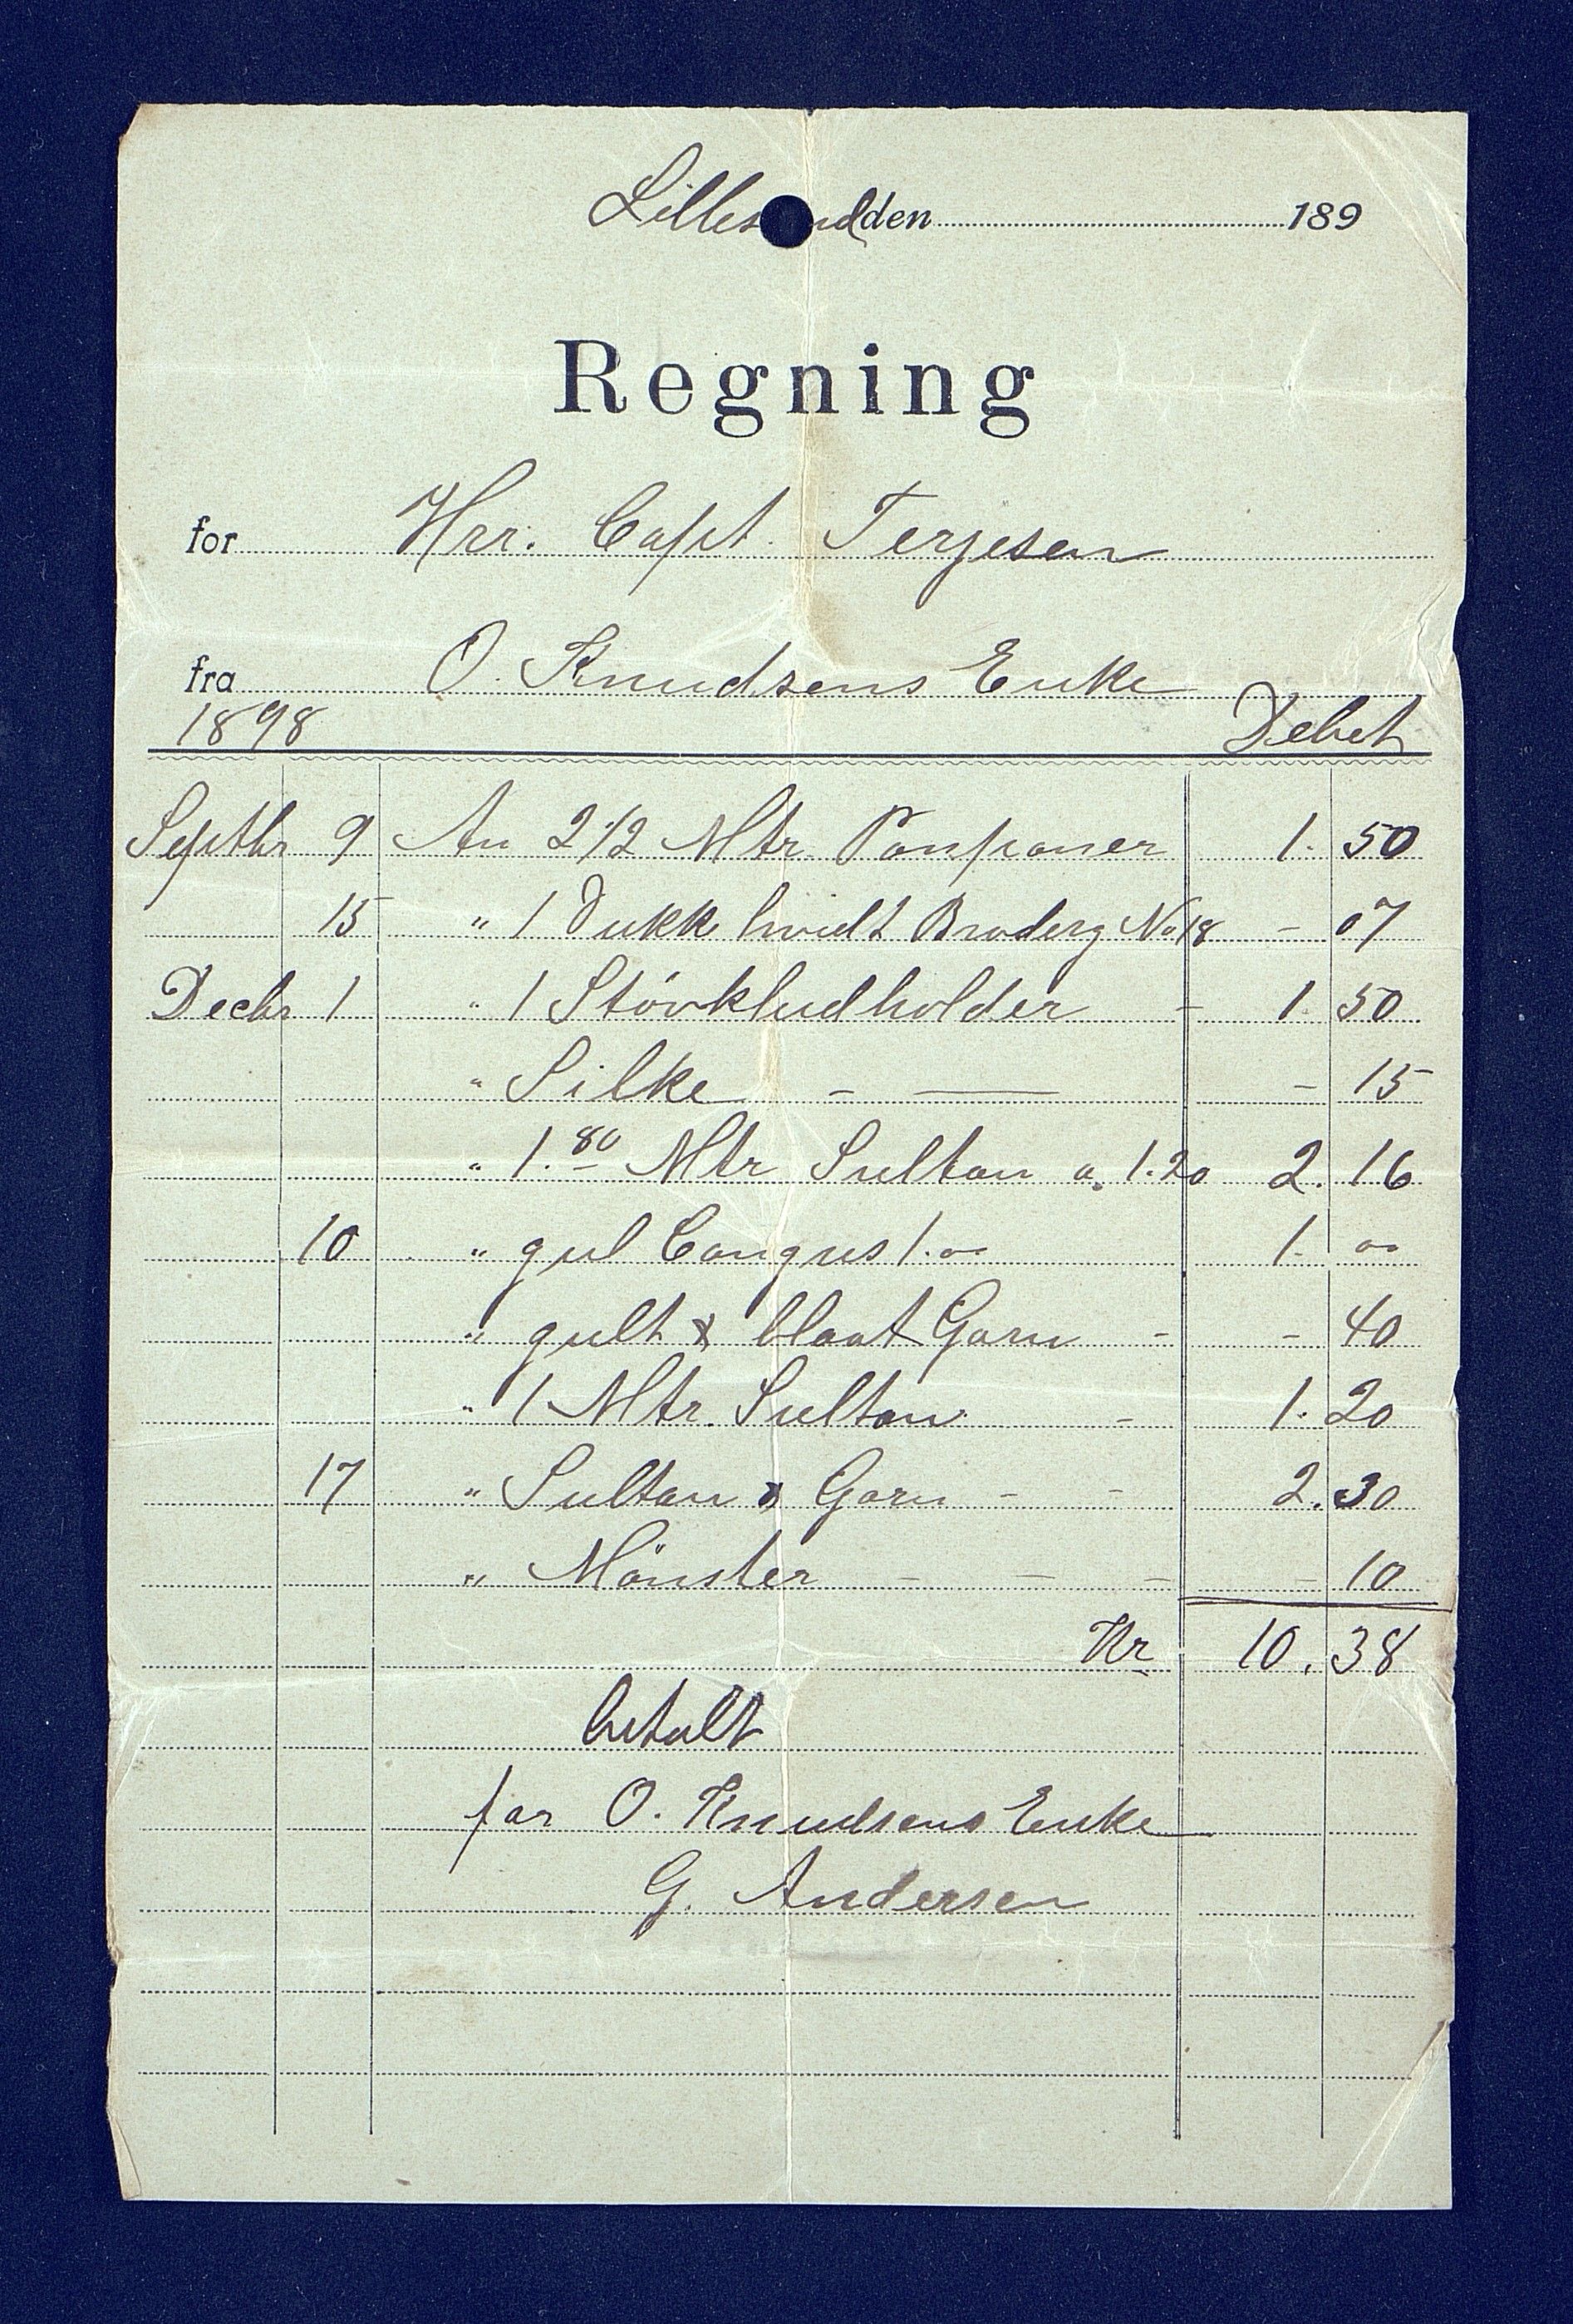 Lilles nd den 189
Regning
for Hrr. Capt. Terjesen
fra O. Knudsens Enke
1898 Debet
Septbr 9 An 2 1/2 Mtr. Ponponer 1. 50
15 " 1 Dukke hvidt Broderg No 18 - 07
Decbr 1 " 1 Stövkludholder - 1. 50
" Silke - — - 15
" 1.80 Mtr Sultan a. 1.20 2. 16
10 " gul Congres 1.00 1. 00
" gult & blaat Garn - - 40
" 1 Mtr. Sultan - 1. 20
17 " Sultan & Garn - - 2. 30
" Mönster - - - - 10
Kr 10. 38
betalt
for O. Knudsens Enke
G. Andersen